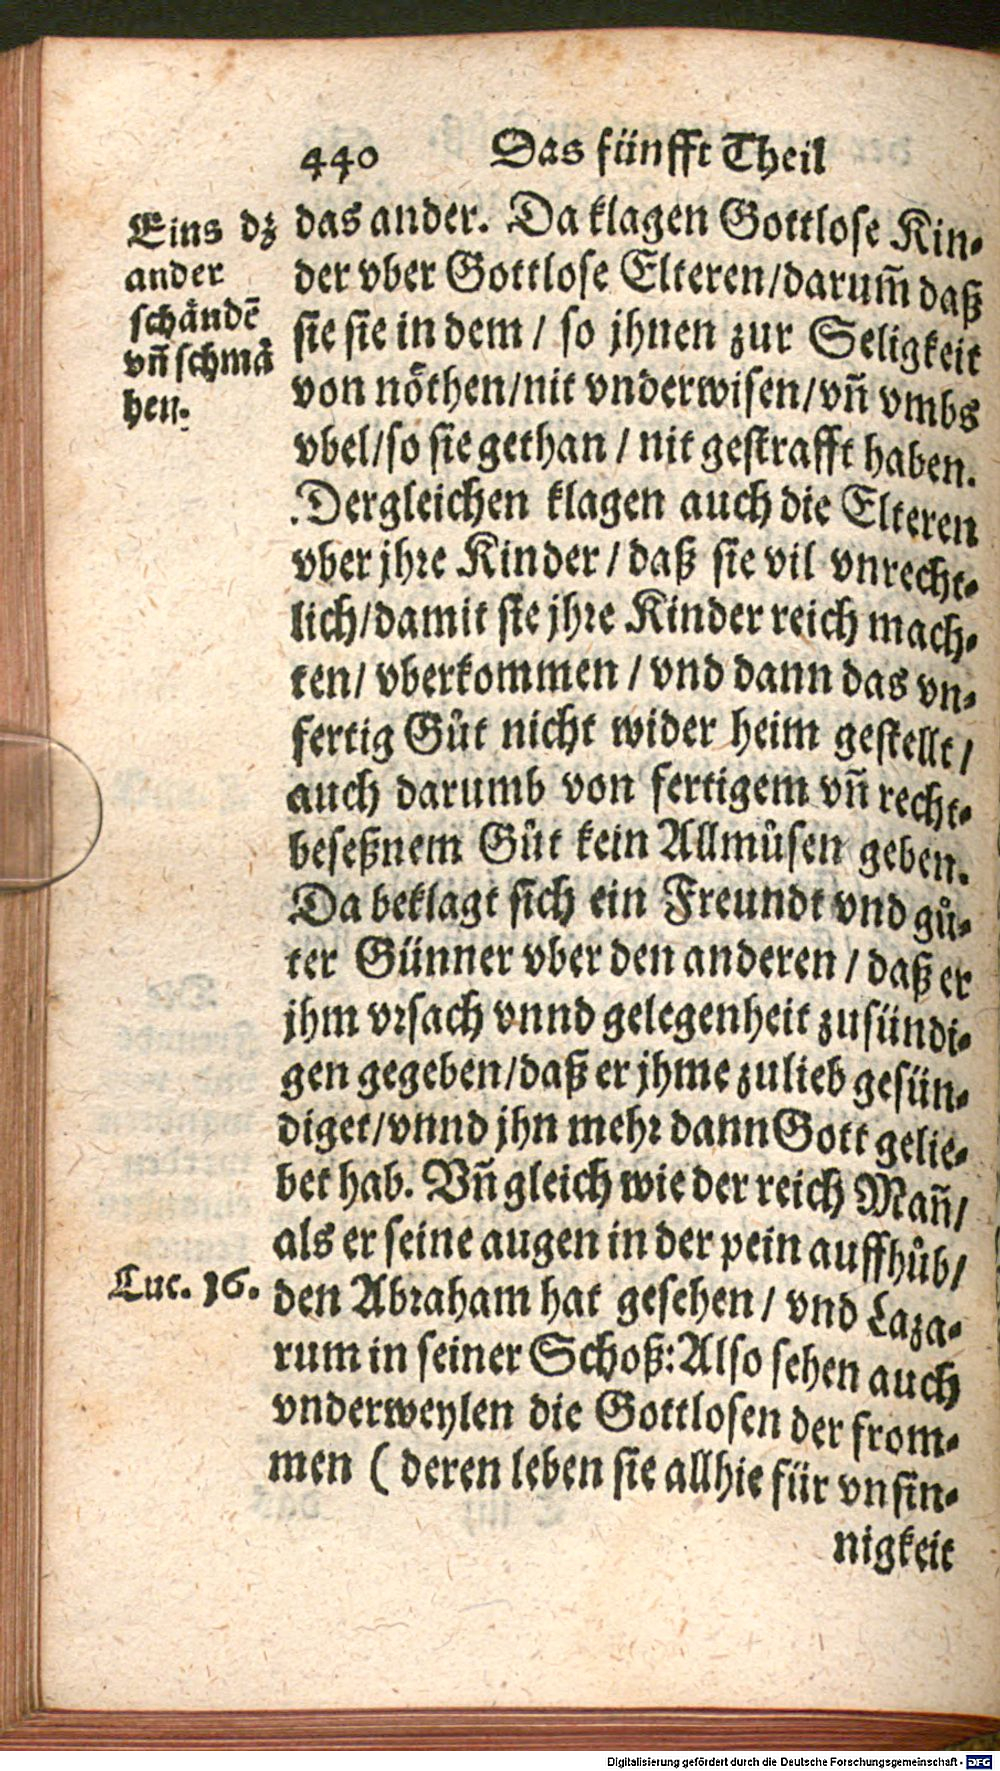 440 Das fünfft Theil
Eins dz
ander
schändẽ
vñ schmä
hen.
das ander. Da klagen Gottlose Kin-
der vber Gottlose Elteren/darum̃ daß
sie sie in dem / so jhnen zur Seligkeit
von nöthen/nit vnderwisen/vñ vmbs
vbel/so sie gethan / nit gestrafft haben.
Dergleichen klagen auch die Elteren
vber jhre Kinder / daß sie vil vnrecht-
lich/damit sie jhre Kinder reich mach-
ten/ vberkommen / vnd dann das vn-
fertig Gůt nicht wider heim gestellt/
auch darumb von fertigem vñ recht-
beseßnem Gůt kein Allmůsen geben.
Da beklagt sich ein Freundt vnd gů-
ter Günner vber den anderen / daß er
jhm vrsach vnnd gelegenheit zusündi-
gen gegeben/daß er jhme zulieb gesün-
diget/vnnd jhn mehr dann Gott gelie-
bet hab. Vñ gleich wie der reich Mañ/
als er seine augen in der pein auffhůb/
Luc. 16.
den Abraham hat gesehen / vnd Laza-
rum in seiner Schoß: Also sehen auch
vnderweylen die Gottlosen der from-
men ( deren leben sie allhie für vnsin-
nigkeit
Digitalisierung gefördert durch die Deutsche Forschungsgemeinschaft - DFG